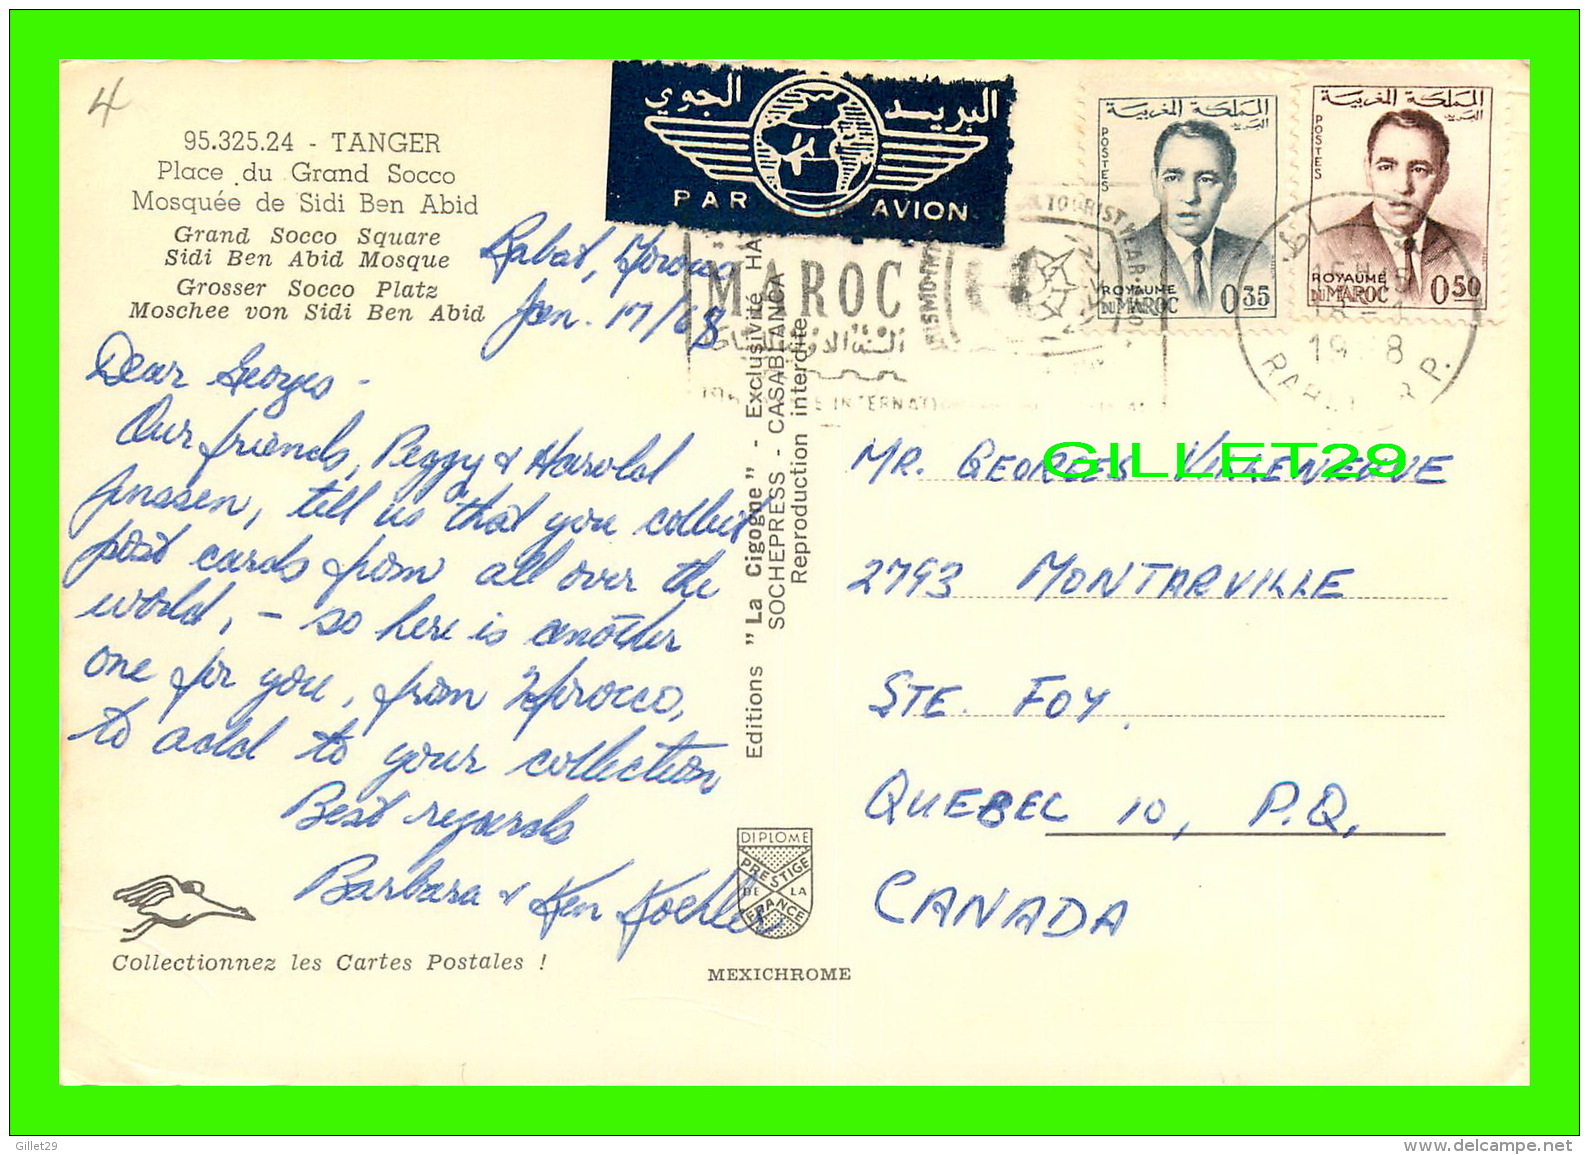 4
95.325.24 - TANGER
Place du Grand Socco
Mosquée de Sidi Ben Abid
Grand Socco Square
Sidi Ben Abid Mosque
Grosser Socco Platz
Moschee von Sidi Ben Abid
Rabat, Morocco
Jan. 17/68
Dear Georges -
Our friends, Peggy & Harold
Janssen, tell us that you collect
post cards from all over the
world, - so here is another
one for you, from Morocco,
to add to your collection
Best regards
Barbara & Ken Koehler
Collectionnez les Cartes Postales !
Editions "La Cigogne" - Exclusivité
SOCHEPRESS - CASABLANCA
Reproduction interdite
DIPLOME
PRESTIGE
DE LA
FRANCE
MEXICHROME
البريد الجوي
PAR AVION
MAROC
المملكة المغربية
البريد
POSTES
ROYAUME
DU MAROC
0.35
المملكة المغربية
البريد
POSTES
ROYAUME
DU MAROC
0.50
GILLET29
MR. GEORGES
2793 MONTARVILLE
STE. FOY,
QUEBEC 10, P.Q.
CANADA
Gillet29
www.delcampe.net